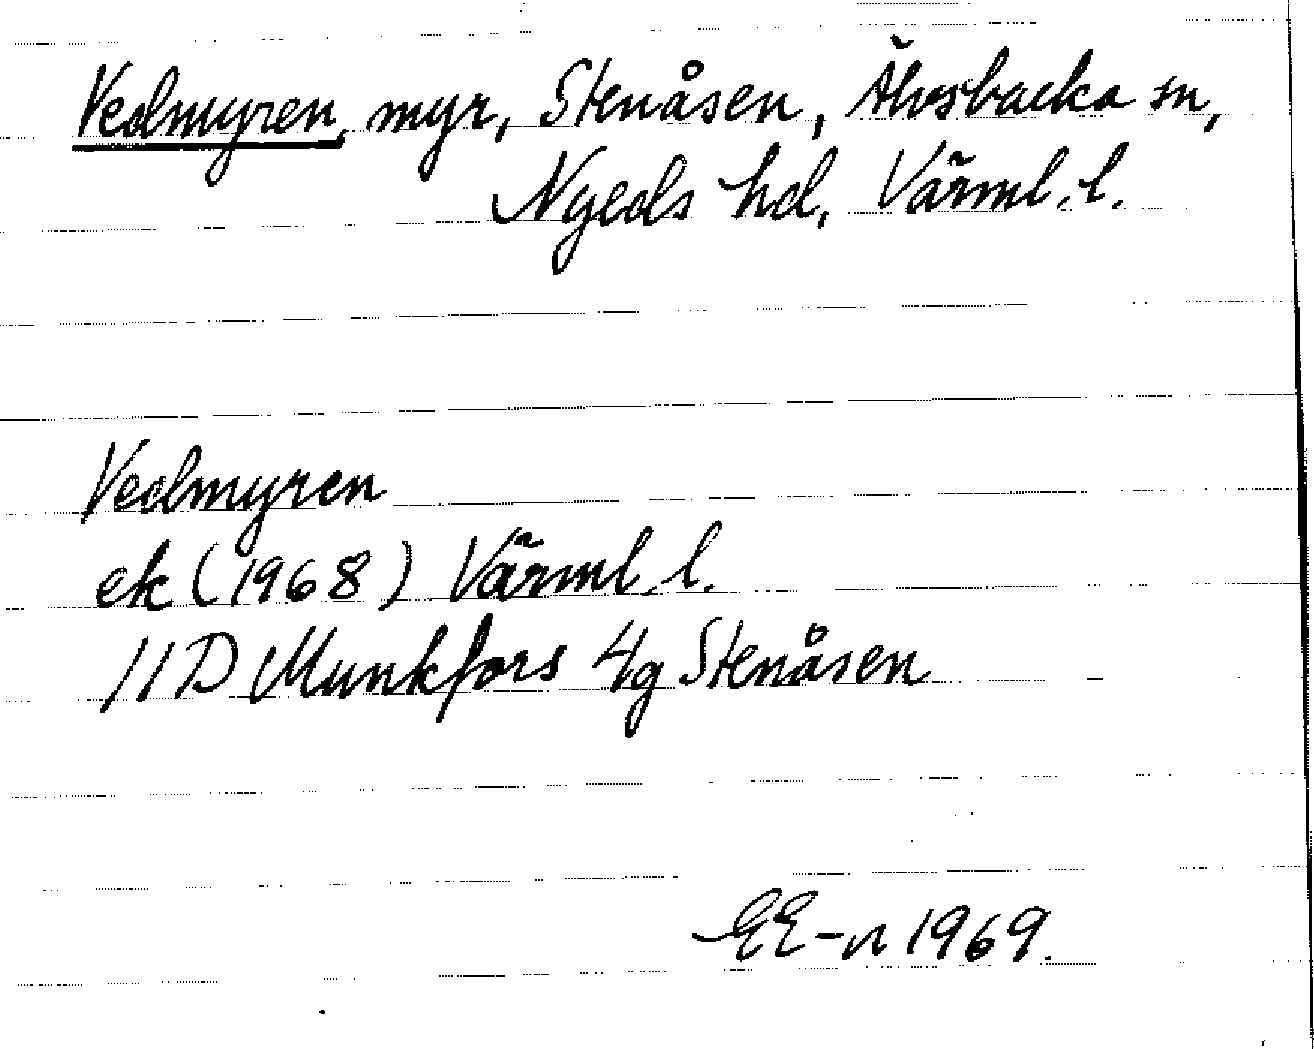 Vedmyren, myr, Stenåsen, Älvsbacka sn,
Nyeds hd, Värml. l.
Vedmyren
ek (1968) Värml. l.
11D Munkfors 4g Stenåsen
EE-n 1969.